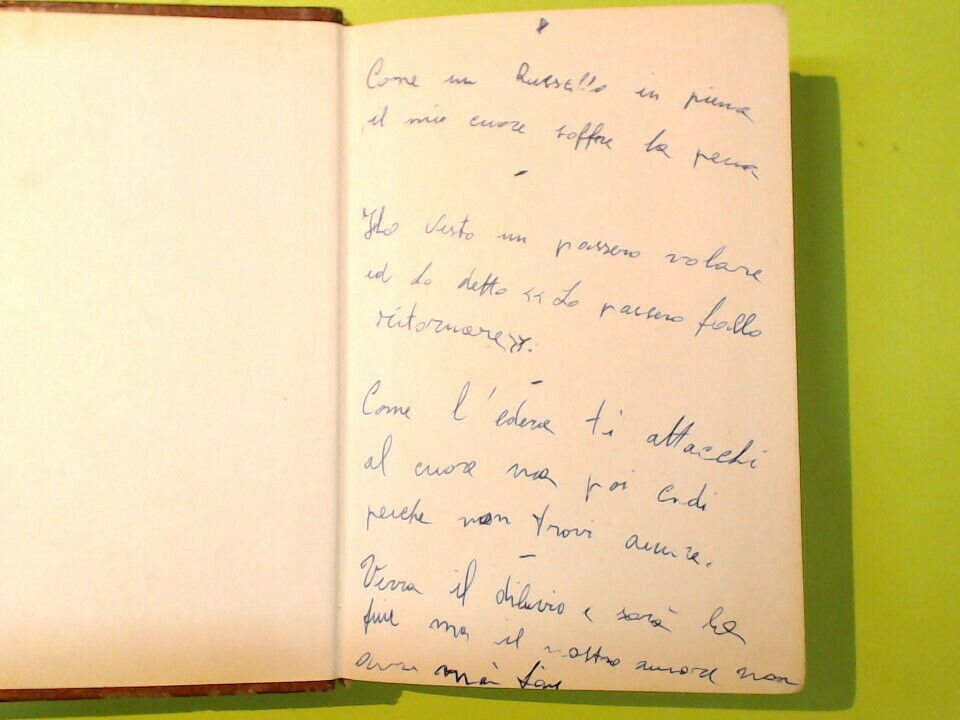 Come un Russello in piena
il mio cuore soffre la pena
Ho visto un passero volare
ed ho detto << Lo passero fallo
ritornare >>.
Come l'edera ti attacchi
al cuore ma poi cadi
perche non trovi amore.
Verra il diluvio e sarà la
fine ma il nostro amore non
avra mai fine